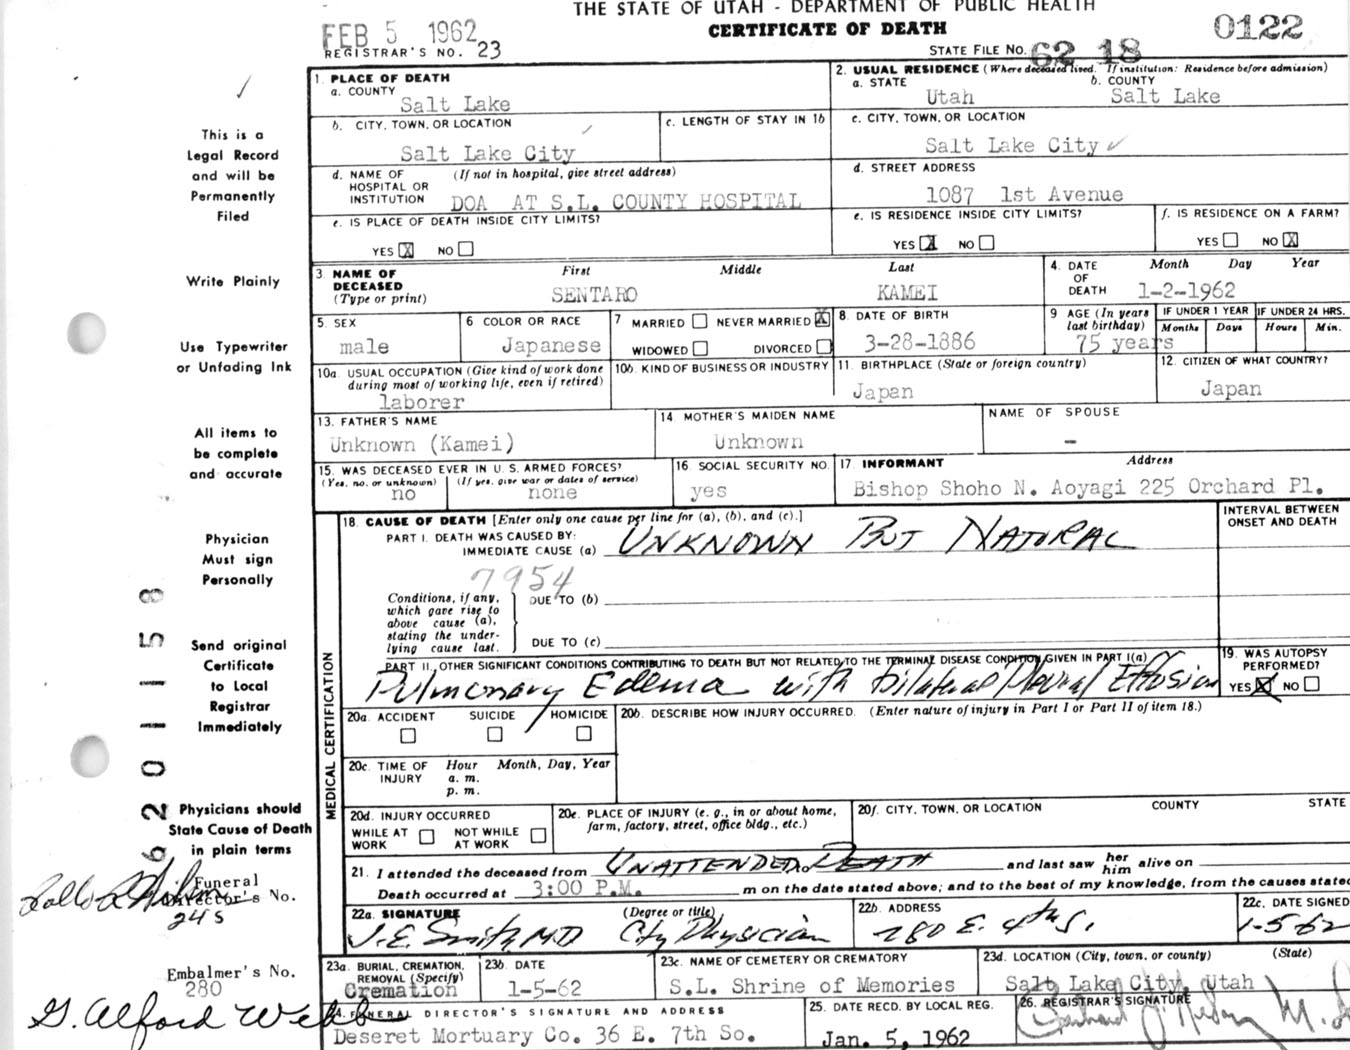 THE STATE OF UTAH - DEPARTMENT OF PUBLIC HEALTH
FEB 5 1962
CERTIFICATE OF DEATH
0122
REGISTRAR'S NO. 23
STATE FILE NO. 62 18
1. PLACE OF DEATH
a. COUNTY
Salt Lake
2. USUAL RESIDENCE (Where deceased lived. If institution: Residence before admission)
a. STATE b. COUNTY
Utah Salt Lake
b. CITY, TOWN, OR LOCATION
Salt Lake City
c. LENGTH OF STAY IN 1b
c. CITY, TOWN, OR LOCATION
Salt Lake City
d. NAME OF HOSPITAL OR INSTITUTION (If not in hospital, give street address)
DOA AT S.L. COUNTY HOSPITAL
d. STREET ADDRESS
1087 1st Avenue
e. IS PLACE OF DEATH INSIDE CITY LIMITS?
YES X NO
e. IS RESIDENCE INSIDE CITY LIMITS?
YES X NO
f. IS RESIDENCE ON A FARM?
YES NO X
3. NAME OF DECEASED (Type or print)
First Middle Last
SENTARO KAMEI
4. DATE OF DEATH
Month Day Year
1-2-1962
5. SEX
male
6 COLOR OR RACE
Japanese
7 MARRIED NEVER MARRIED X
WIDOWED DIVORCED
8. DATE OF BIRTH
3-28-1886
9 AGE (In years last birthday)
75 years
IF UNDER 1 YEAR
Months Days
IF UNDER 24 HRS.
Hours Min.
10a. USUAL OCCUPATION (Give kind of work done during most of working life, even if retired)
laborer
10b. KIND OF BUSINESS OR INDUSTRY
11. BIRTHPLACE (State or foreign country)
Japan
12. CITIZEN OF WHAT COUNTRY?
Japan
13. FATHER'S NAME
Unknown (Kamei)
14 MOTHER'S MAIDEN NAME
Unknown
NAME OF SPOUSE
-
15. WAS DECEASED EVER IN U.S. ARMED FORCES?
(Yes, no, or unknown) (If yes, give war or dates of service)
no none
16 SOCIAL SECURITY NO.
yes
17. INFORMANT Address
Bishop Shoho N. Aoyagi 225 Orchard Pl.
MEDICAL CERTIFICATION
18. CAUSE OF DEATH [Enter only one cause per line for (a), (b), and (c).]
PART I. DEATH WAS CAUSED BY:
IMMEDIATE CAUSE (a) UNKNOWN BUT NATURAL
7954
Conditions, if any, which gave rise to above cause (a), stating the underlying cause last.
DUE TO (b)
DUE TO (c)
INTERVAL BETWEEN ONSET AND DEATH
PART II. OTHER SIGNIFICANT CONDITIONS CONTRIBUTING TO DEATH BUT NOT RELATED TO THE TERMINAL DISEASE CONDITION GIVEN IN PART I(a)
Pulmonary Edema with bilateral Pleural Effusion
19. WAS AUTOPSY PERFORMED?
YES X NO
20a. ACCIDENT SUICIDE HOMICIDE
20b. DESCRIBE HOW INJURY OCCURRED. (Enter nature of injury in Part I or Part II of item 18.)
20c. TIME OF INJURY Hour Month, Day, Year
a. m.
p. m.
20d. INJURY OCCURRED
WHILE AT WORK NOT WHILE AT WORK
20e. PLACE OF INJURY (e. g., in or about home, farm, factory, street, office bldg., etc.)
20f. CITY, TOWN, OR LOCATION COUNTY STATE
21. I attended the deceased from UNATTENDED DEATH and last saw her him alive on
Death occurred at 3:00 P.M. m on the date stated above; and to the best of my knowledge, from the causes stated
22a. SIGNATURE (Degree or title)
J.E. Smith, MD City Physician
22b. ADDRESS
280 E. 4th S.
22c. DATE SIGNED
1-5-62
23a. BURIAL, CREMATION, REMOVAL (Specify)
Cremation
23b. DATE
1-5-62
23c. NAME OF CEMETERY OR CREMATORY
S.L. Shrine of Memories
23d. LOCATION (City, town, or county) (State)
Salt Lake City, Utah
24. FUNERAL DIRECTOR'S SIGNATURE AND ADDRESS
Deseret Mortuary Co. 36 E. 7th So.
25. DATE RECD. BY LOCAL REG.
Jan. 5, 1962
26. REGISTRAR'S SIGNATURE
This is a
Legal Record
and will be
Permanently
Filed
Write Plainly
Use Typewriter
or Unfading Ink
All items to
be complete
and accurate
Physician
Must sign
Personally
Send original
Certificate
to Local
Registrar
Immediately
Physicians should
State Cause of Death
in plain terms
Funeral
Director's No.
245
Embalmer's No.
280
G. Alford Webb